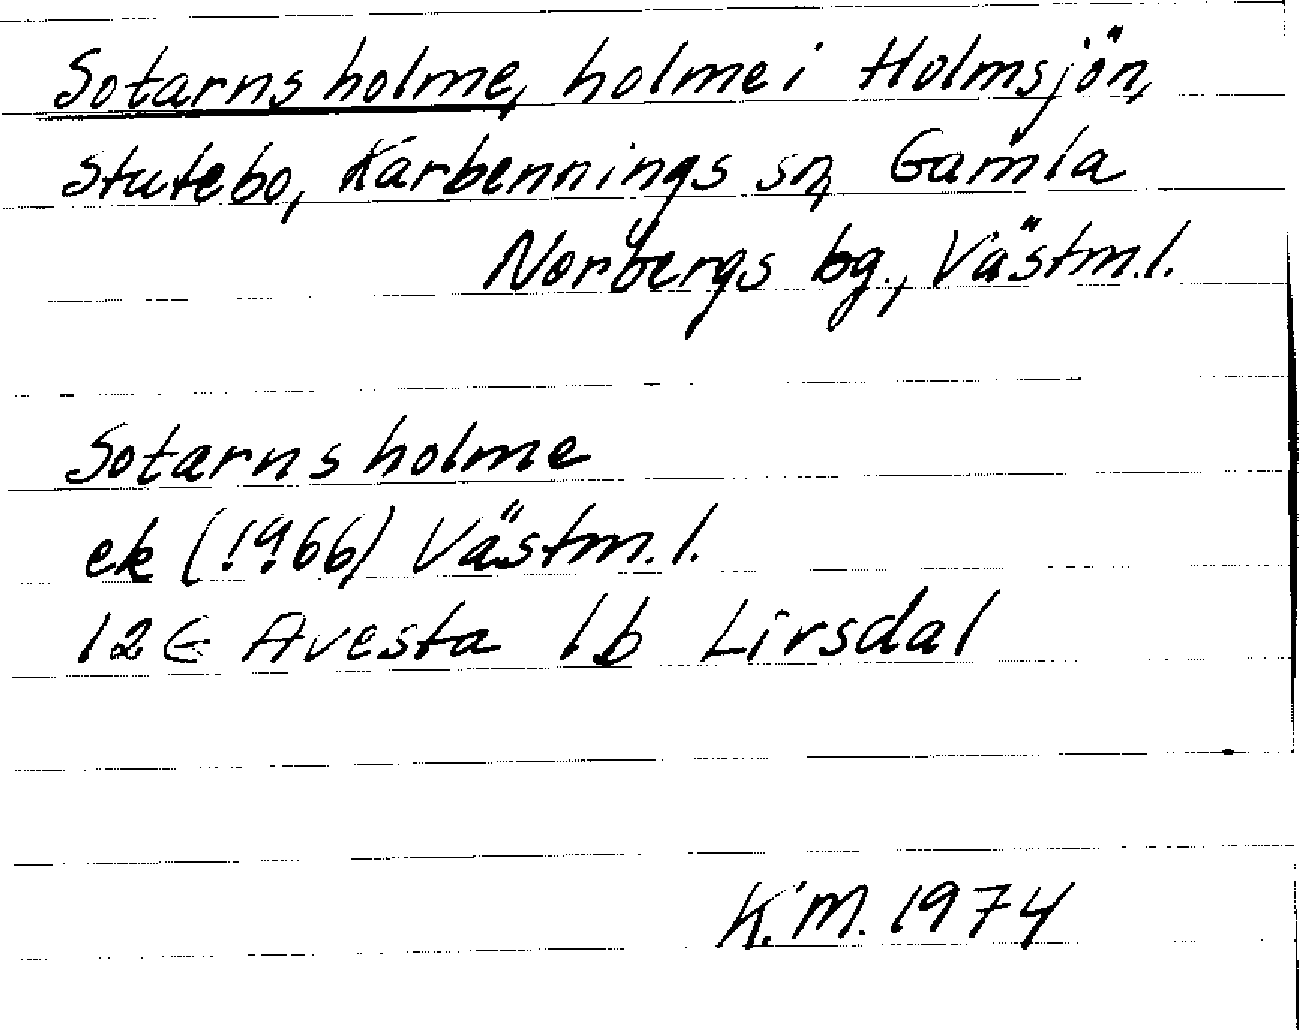 Sotarnsholme, holme i Holmsjön,
Stutebo, Karbennings sn, Gamla
Norbergs bg., Västm.l.
Sotarnsholme
ek (1966) Västm.l.
12G Avesta 1b Lirsdal
K.M. 1974